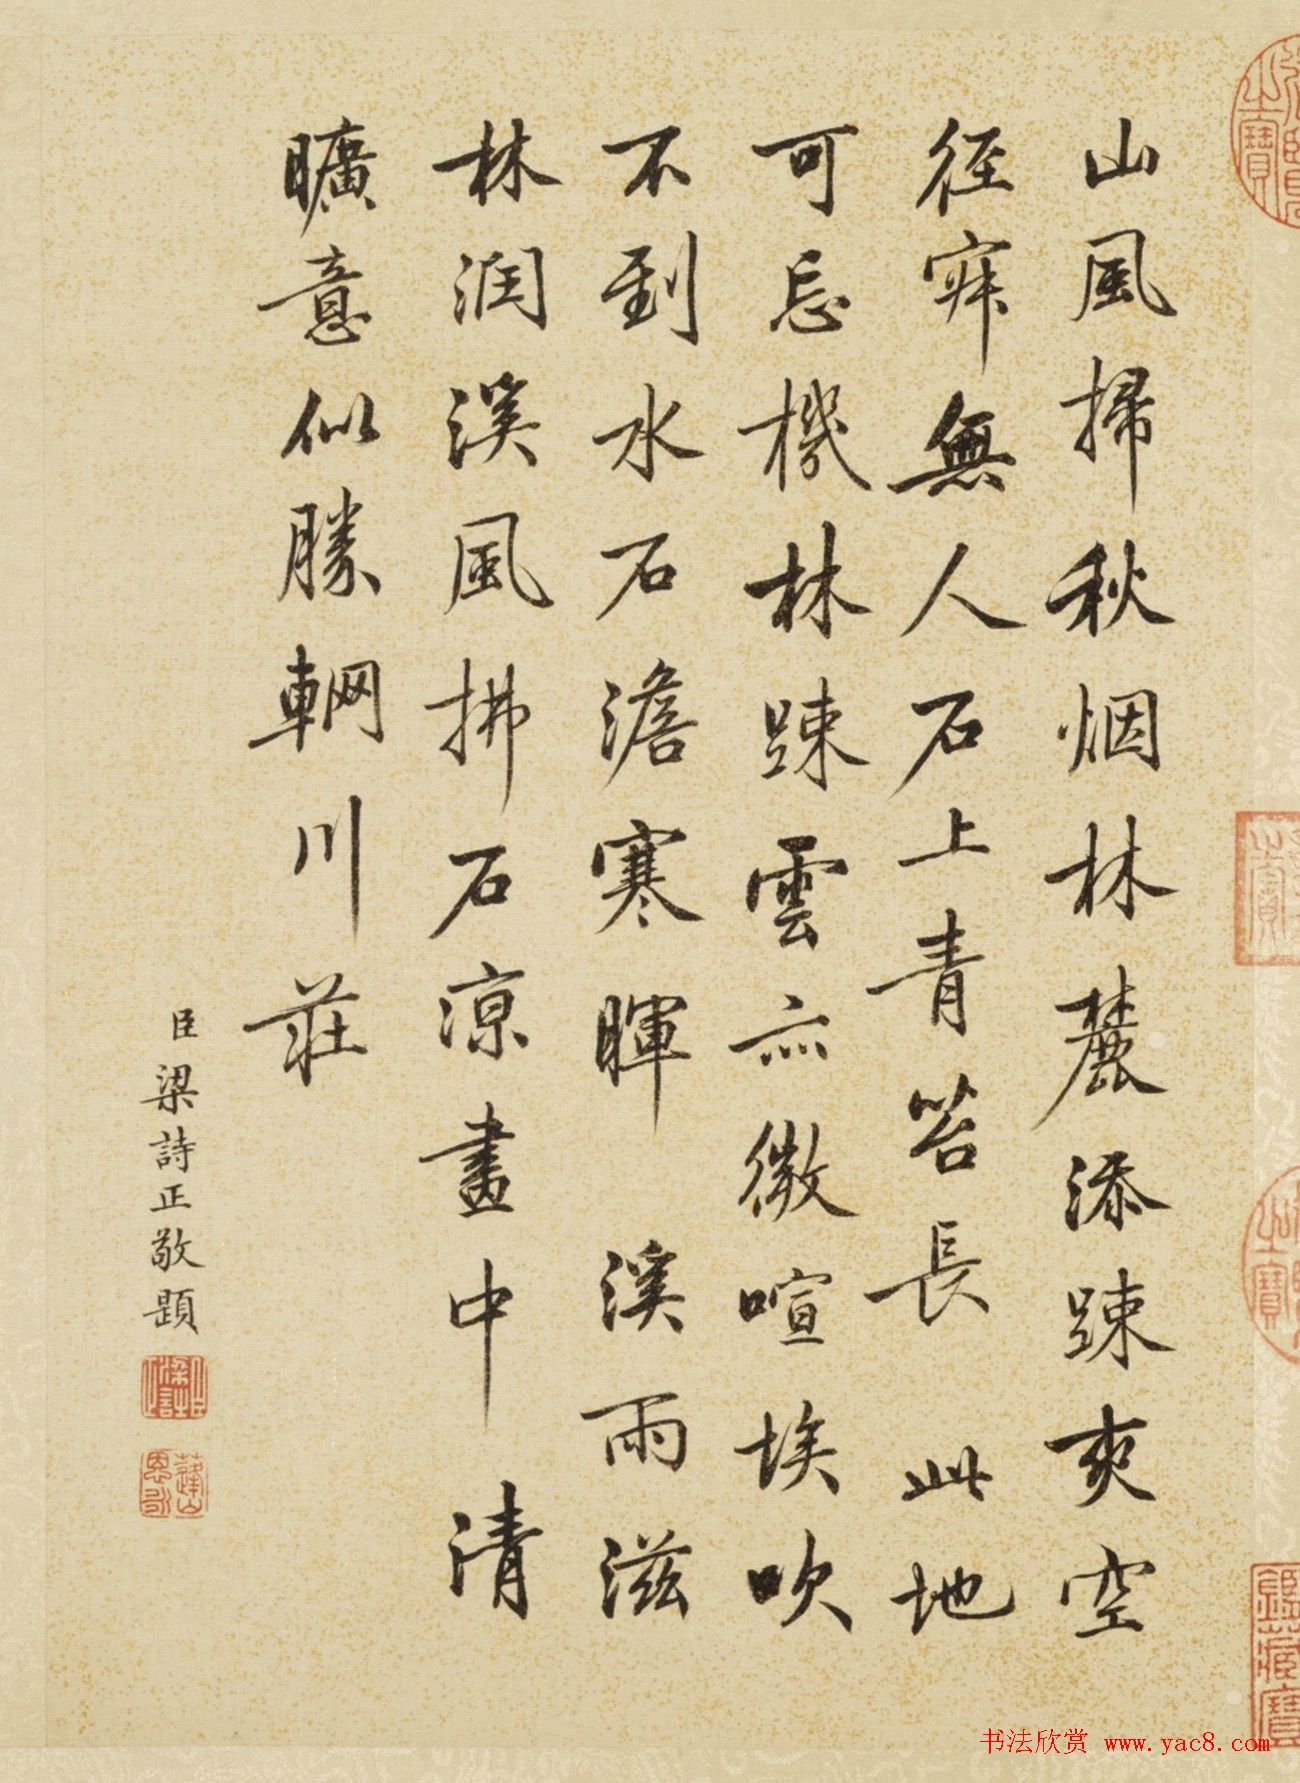 山風掃秋烟林麓添踈爽空
徑寂無人石上青苔長 此地
可忘機林踈雲亦微喧埃吹
不到水石澹寒暉 溪雨滋
林潤溪風拂石涼畫中 清
曠意似勝輞川莊
臣梁詩正敬題
书法欣赏 www.yac8.com